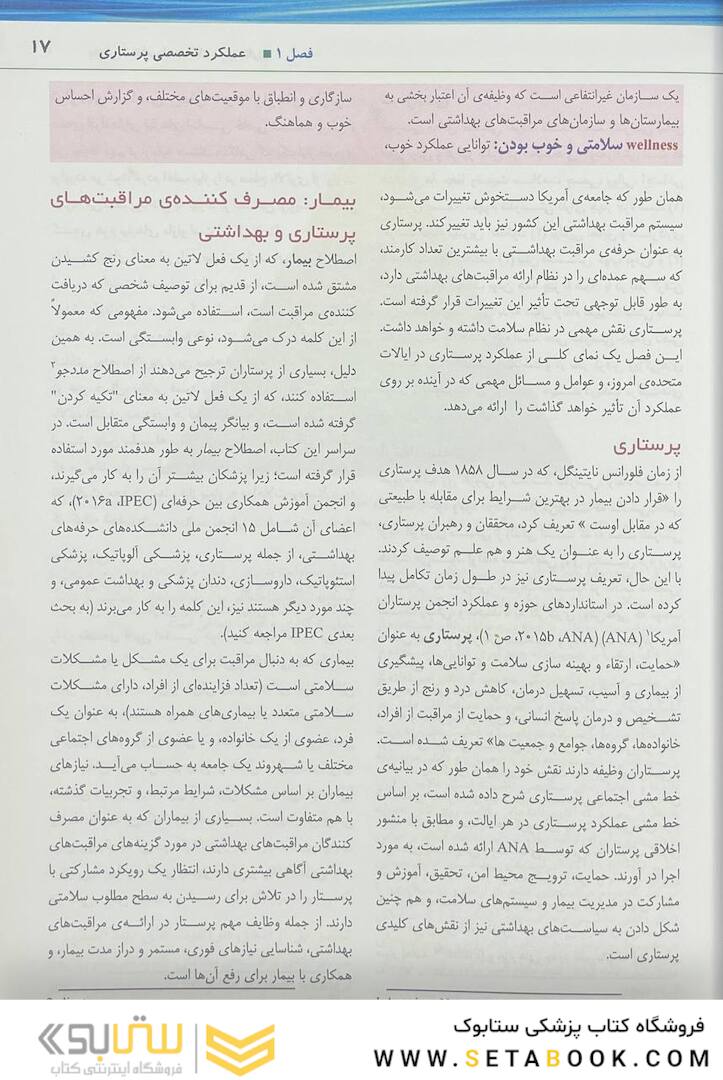 فصل ۱ ■ عملکرد تخصصی پرستاری
۱۷
یک سازمان غیرانتفاعی است که وظیفه‌ی آن اعتبار بخشی به
بیمارستان‌ها و سازمان‌های مراقبت‌های بهداشتی است.
wellness سلامتی و خوب بودن: توانایی عملکرد خوب،
سازگاری و انطباق با موقعیت‌های مختلف، و گزارش احساس
خوب و هماهنگ.
همان طور که جامعه‌ی آمریکا دستخوش تغییرات می‌شود،
سیستم مراقبت بهداشتی این کشور نیز باید تغییر کند. پرستاری
به عنوان حرفه‌ی مراقبت بهداشتی با بیشترین تعداد کارمند،
که سهم عمده‌ای را در نظام ارائه مراقبت‌های بهداشتی دارد،
به طور قابل توجهی تحت تأثیر این تغییرات قرار گرفته است.
پرستاری نقش مهمی در نظام سلامت داشته و خواهد داشت.
این فصل یک نمای کلی از عملکرد پرستاری در ایالات
متحده‌ی امروز، و عوامل و مسائل مهمی که در آینده بر روی
عملکرد آن تأثیر خواهد گذاشت را ارائه می‌دهد.
پرستاری
از زمان فلورانس نایتینگل، که در سال ۱۸۵۸ هدف پرستاری
را «قرار دادن بیمار در بهترین شرایط برای مقابله با طبیعتی
که در مقابل اوست » تعریف کرد، محققان و رهبران پرستاری،
پرستاری را به عنوان یک هنر و هم علم توصیف کردند.
با این حال، تعریف پرستاری نیز در طول زمان تکامل پیدا
کرده است. در استانداردهای حوزه و عملکرد انجمن پرستاران
آمریکا۱ (ANA) (ANA، ۲۰۱۵b، ص ۱)، پرستاری به عنوان
«حمایت، ارتقاء و بهینه سازی سلامت و توانایی‌ها، پیشگیری
از بیماری و آسیب، تسهیل درمان، کاهش درد و رنج از طریق
تشخیص و درمان پاسخ انسانی، و حمایت از مراقبت از افراد،
خانواده‌ها، گروه‌ها، جوامع و جمعیت ها» تعریف شده است.
پرستاران وظیفه دارند نقش خود را همان طور که در بیانیه‌ی
خط مشی اجتماعی پرستاری شرح داده شده است، بر اساس
خط مشی عملکرد پرستاری در هر ایالت، و مطابق با منشور
اخلاقی پرستاران که توسط ANA ارائه شده است، به مورد
اجرا در آورند. حمایت، ترویج محیط امن، تحقیق، آموزش و
مشارکت در مدیریت بیمار و سیستم‌های سلامت، و هم چنین
شکل دادن به سیاست‌های بهداشتی نیز از نقش‌های کلیدی
پرستاری است.
بیمار: مصرف کننده‌ی مراقبت‌های
پرستاری و بهداشتی
اصطلاح بیمار، که از یک فعل لاتین به معنای رنج کشیدن
مشتق شده است، از قدیم برای توصیف شخصی که دریافت
کننده‌ی مراقبت است، استفاده می‌شود. مفهومی که معمولاً
از این کلمه درک می‌شود، نوعی وابستگی است. به همین
دلیل، بسیاری از پرستاران ترجیح می‌دهند از اصطلاح مددجو۲
استفاده کنند، که از یک فعل لاتین به معنای "تکیه کردن"
گرفته شده است، و بیانگر پیمان و وابستگی متقابل است. در
سراسر این کتاب، اصطلاح بیمار به طور هدفمند مورد استفاده
قرار گرفته است؛ زیرا پزشکان بیشتر آن را به کار می‌گیرند،
و انجمن آموزش همکاری بین حرفه‌ای (IPEC، ۲۰۱۶a)، که
اعضای آن شامل ۱۵ انجمن ملی دانشکده‌های حرفه‌های
بهداشتی، از جمله پرستاری، پزشکی آلوپاتیک، پزشکی
استئوپاتیک، داروسازی، دندان پزشکی و بهداشت عمومی، و
چند مورد دیگر هستند نیز، این کلمه را به کار می‌برند (به بحث
بعدی IPEC مراجعه کنید).
بیماری که به دنبال مراقبت برای یک مشکل یا مشکلات
سلامتی است (تعداد فزاینده‌ای از افراد، دارای مشکلات
سلامتی متعدد یا بیماری‌های همراه هستند)، به عنوان یک
فرد، عضوی از یک خانواده، و یا عضوی از گروه‌های اجتماعی
مختلف یا شهروند یک جامعه به حساب می‌آید. نیازهای
بیماران بر اساس مشکلات، شرایط مرتبط، و تجربیات گذشته،
با هم متفاوت است. بسیاری از بیماران که به عنوان مصرف
کنندگان مراقبت‌های بهداشتی در مورد گزینه‌های مراقبت‌های
بهداشتی آگاهی بیشتری دارند، انتظار یک رویکرد مشارکتی با
پرستار را در تلاش برای رسیدن به سطح مطلوب سلامتی
دارند. از جمله وظایف مهم پرستار در ارائه‌ی مراقبت‌های
بهداشتی، شناسایی نیازهای فوری، مستمر و دراز مدت بیمار، و
همکاری با بیمار برای رفع آن‌ها است.
فروشگاه کتاب پزشکی ستابوک
WWW.SETABOOK.COM
ستابوک
فروشگاه اینترنتی کتاب